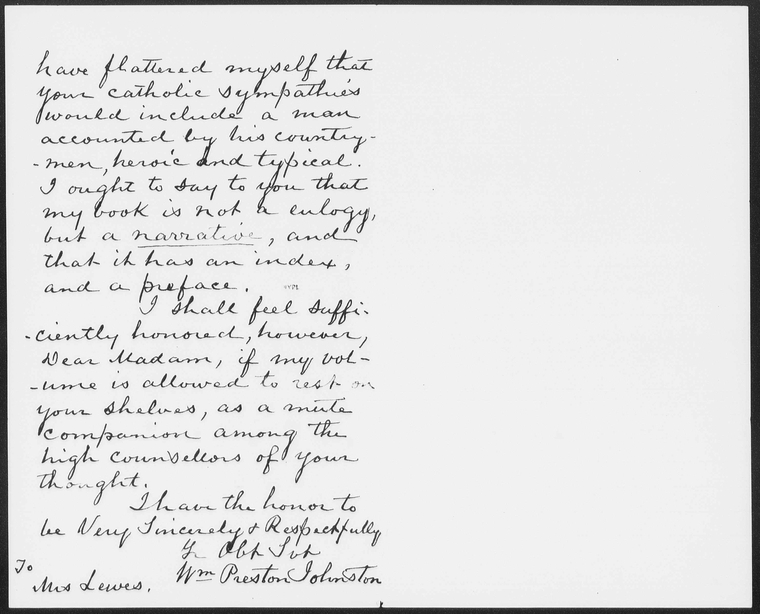 have flattered myself that
your catholic sympathies
would include a man
accounted by his country-
-men, heroic and typical.
I ought to say to you that
my book is not a eulogy,
but a narrative, and
that it has an index,
and a preface.
I shall feel suffi-
-ciently honored, however,
Dear Madam, if my vol-
-ume is allowed to rest on
your shelves, as a mute
companion among the
high counsellors of your
thought.
I have the honor to
be Very Sincerely & Respectfully
Yr Obt Svt
Wm Preston Johnston
To
Mrs Lewes.